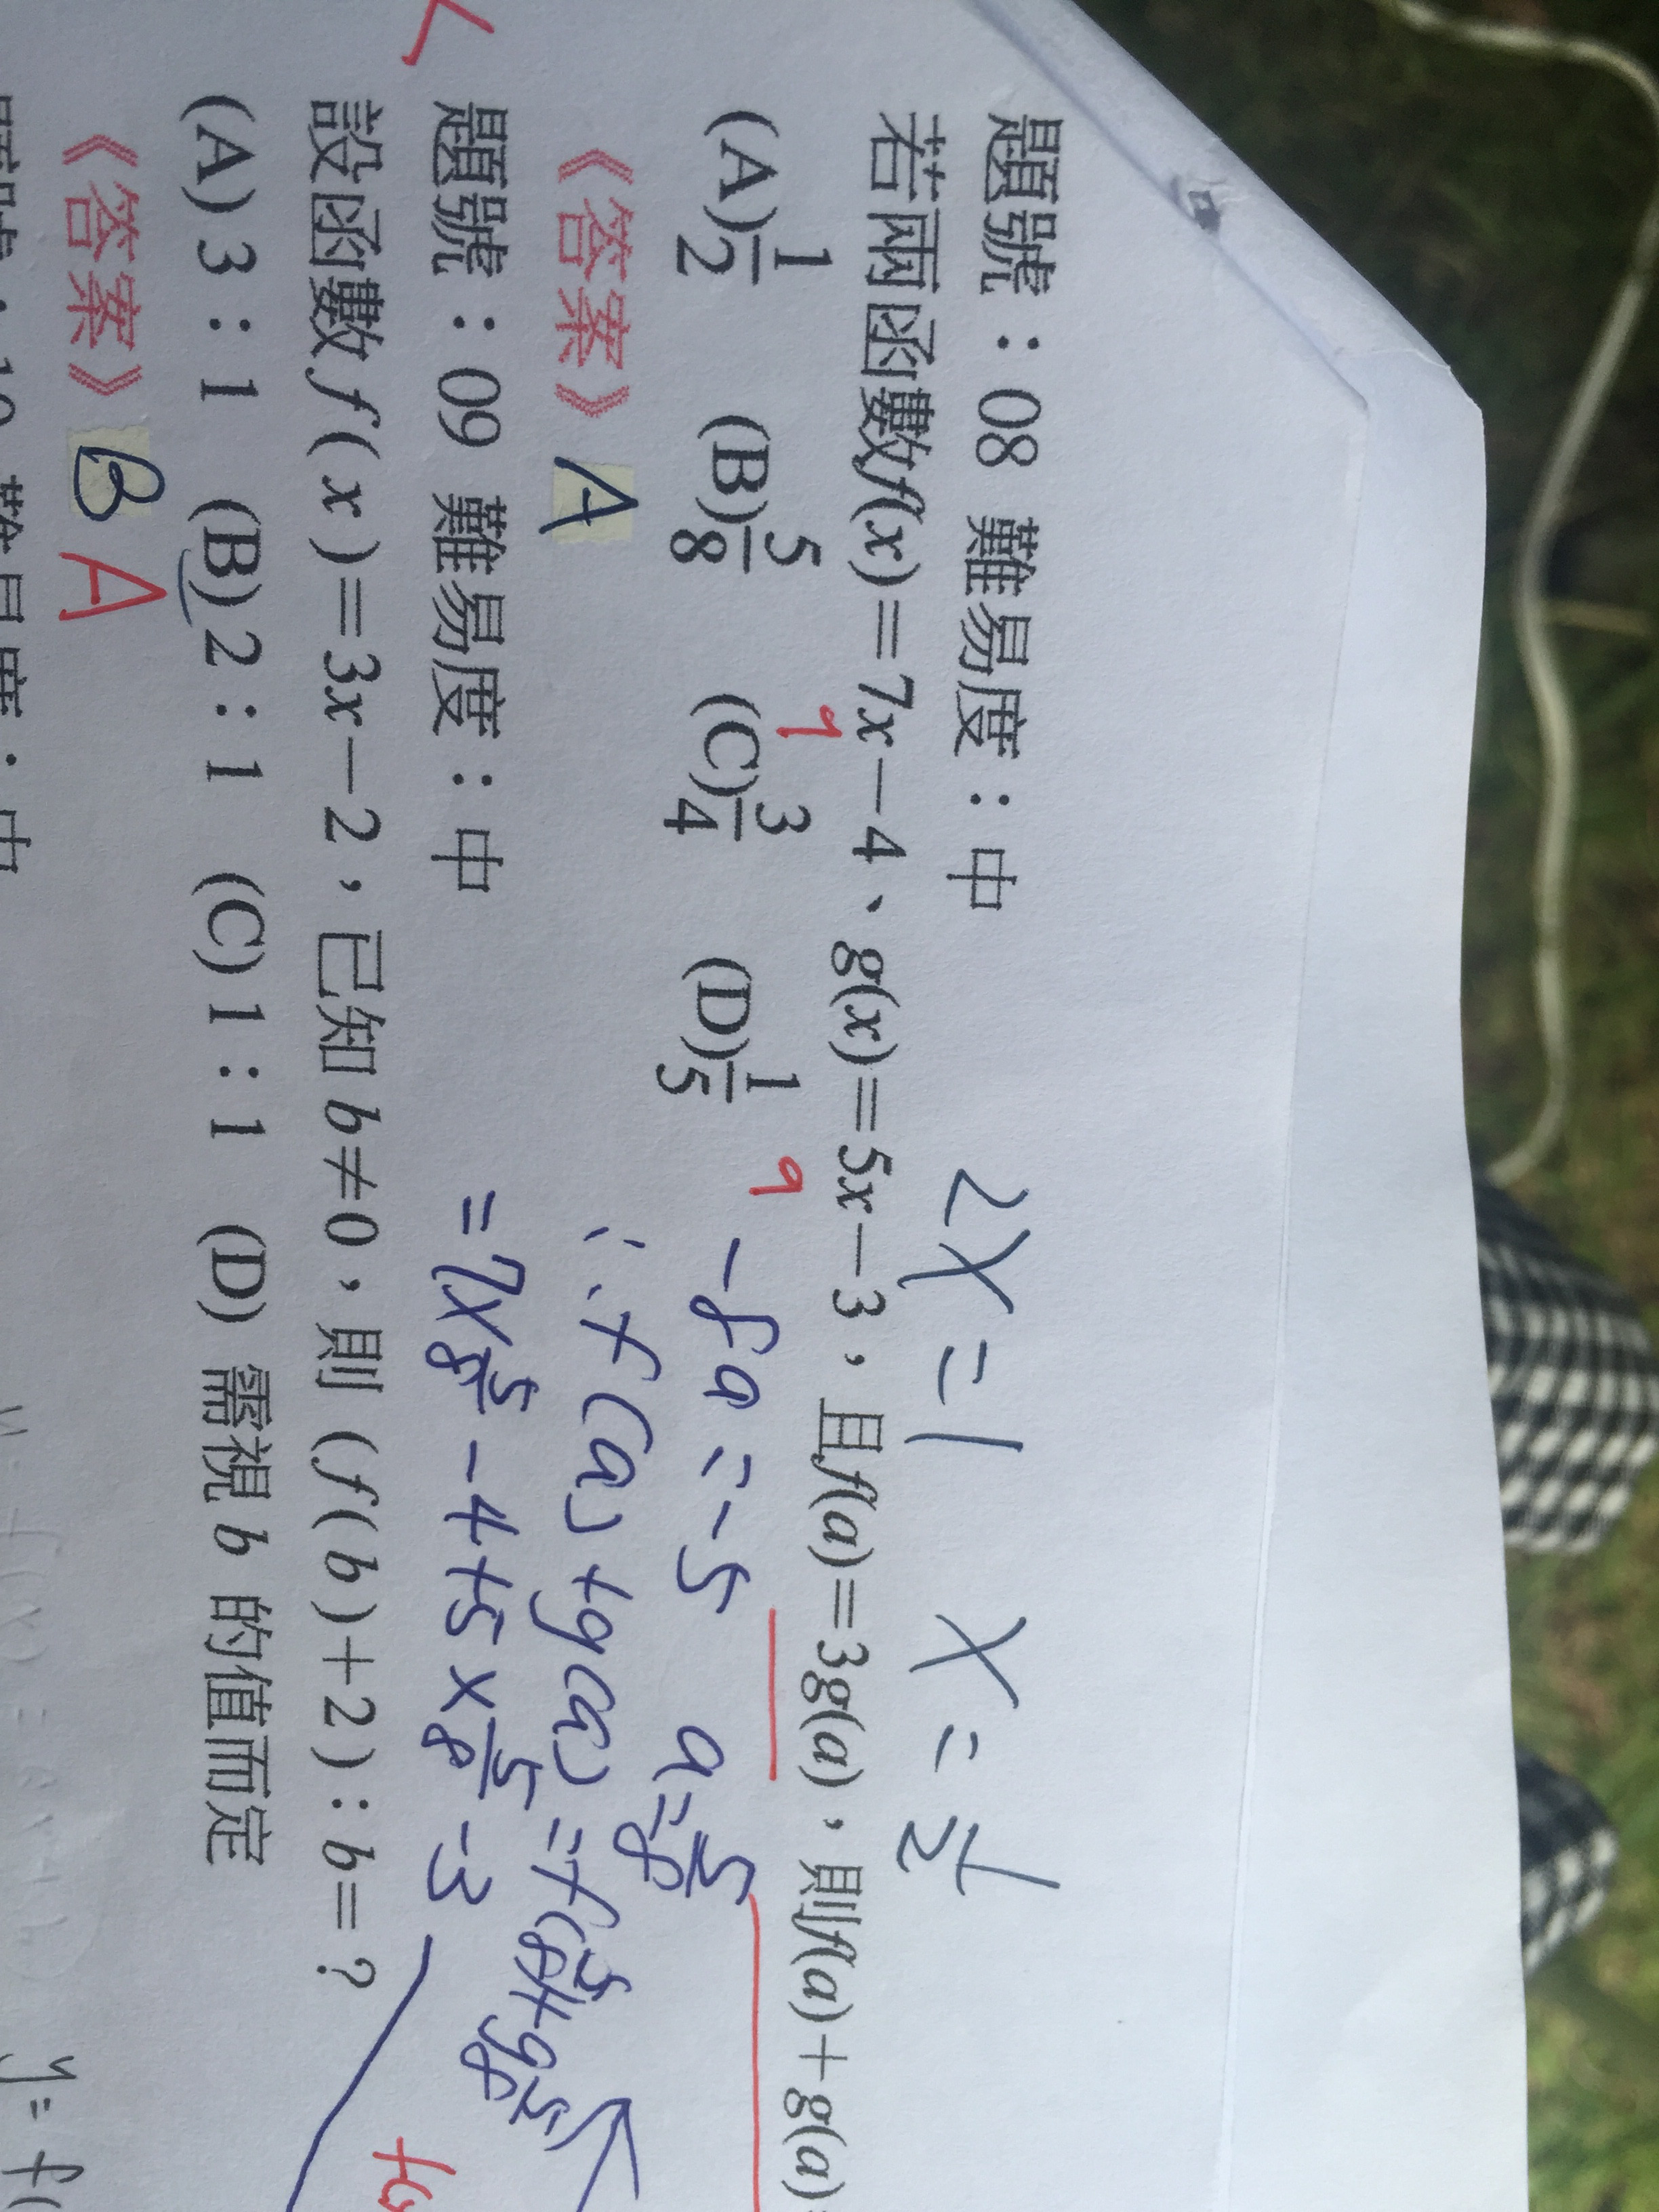 題號：08 難易度：中
2X = 1 X = 1/2
若兩函數f(x)=7x−4、g(x)=5x−3，且f(a)=3g(a)，則f(a)+g(a)
(A)1/2 (B)5/8 (C)3/4 (D)1/5
-8a = -5 a = 5/8
∴ f(a)+g(a) = f(5/8)+g5/8
《答案》A
= 7×5/8 -4+5×5/8 -3
題號：09 難易度：中
設函數 f(x)=3x−2，已知 b≠0，則 (f(b)+2)：b=？
(A) 3：1 (B) 2：1 (C) 1：1 (D) 需視 b 的值而定
《答案》B A
y= f(